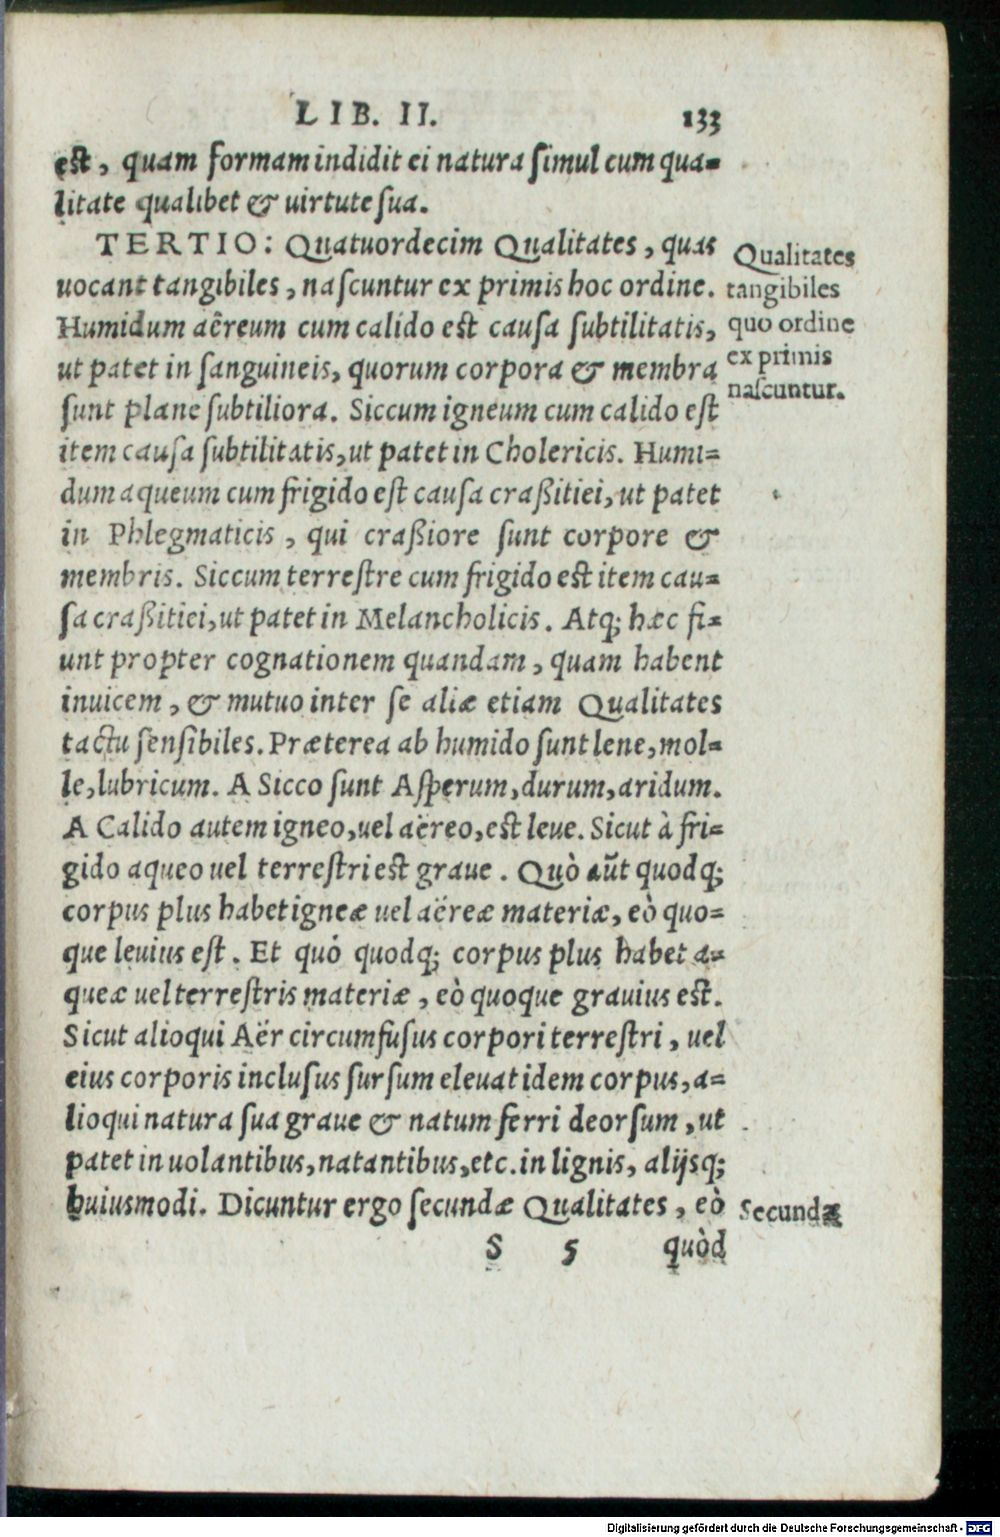 LIB. II. 133
est, quam formam indidit ei natura simul cum qua-
litate qualibet & uirtute sua.
TERTIO: Quatuordecim Qualitates, quas
uocant tangibiles, nascuntur ex primis hoc ordine.
Humidum aëreum cum calido est causa subtilitatis,
ut patet in sanguineis, quorum corpora & membra
sunt plane subtiliora. Siccum igneum cum calido est
item causa subtilitatis, ut patet in Cholericis. Humi-
dum aqueum cum frigido est causa craßitiei, ut patet
in Phlegmaticis, qui craßiore sunt corpore &
membris. Siccum terrestre cum frigido est item cau-
sa craßitiei, ut patet in Melancholicis. Atq; hæc fi-
unt propter cognationem quandam, quam habent
inuicem, & mutuo inter se aliæ etiam Qualitates
tactu sensibiles. Præterea ab humido sunt lene, mol-
le, lubricum. A Sicco sunt Asperum, durum, aridum.
A Calido autem igneo, uel aëreo, est leue. Sicut à fri-
gido aqueo uel terrestri est graue. Quò aūt quodq;
corpus plus habet igneæ uel aëreæ materiæ, eò quo-
que leuius est. Et quò quodq; corpus plus habet a-
queæ uel terrestris materiæ, eò quoque grauius est.
Sicut alioqui Aër circumfusus corpori terrestri, uel
eius corporis inclusus sursum eleuat idem corpus, a-
lioqui natura sua graue & natum ferri deorsum, ut
patet in uolantibus, natantibus, etc. in lignis, alijsq;
huiusmodi. Dicuntur ergo secundæ Qualitates, eò
S 5 quòd
Qualitates
tangibiles
quo ordine
ex primis
nascuntur.
Secundæ
Digitalisierung gefördert durch die Deutsche Forschungsgemeinschaft - DFG